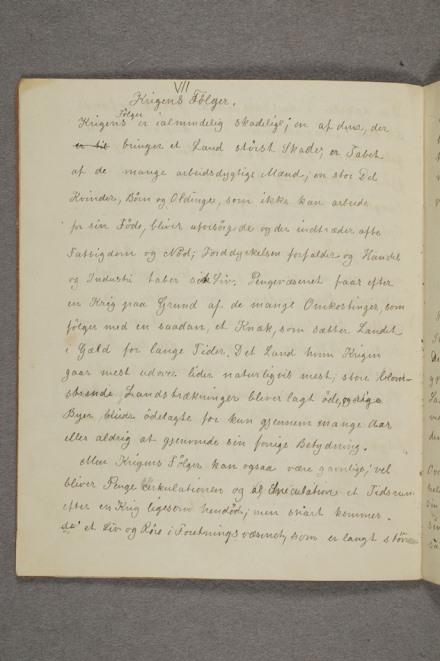 VII
Krigens Følger.
Følger
Krigens er i almindelig skadelige; en af dem, der
er til bringer et Land størst Skade, er Tabet
af de mange arbeidsdygtige Mænd; en stor Del
Kvinder, Børn og Oldinge, som ikke kan arbeide
for sin Føde, bliver uforsørgede og der indtræder ofte
Fattigdom og Nød; Jorddyrkelsen forfalder og Handel
og Industri taber sit Liv. Pengevæsenet faar efter
en Krig paa Grund af de mange Omkostinger, som
følger med en saadan, et Knæk, som sætter Landet
i Gjæld for lange Tider. Det Land hvori Krigen
gaar mest udover lider naturligvis mest; store blom-
strende Landstrækninger bliver lagt øde, og rige
Byer blive ødelagte for kun gjennem mange Aar
eller aldrig at gjenvinde sin forrige Betydning.
Men Krigens Følger kan ogsaa være gavnlige; vel
bliver Penge Cirkulationen og al Speculation et Tidsrum
efter en Krig ligesom hendød; men snart kommer
der et Liv og Røre i Foretningsvæsenet, som er langt større